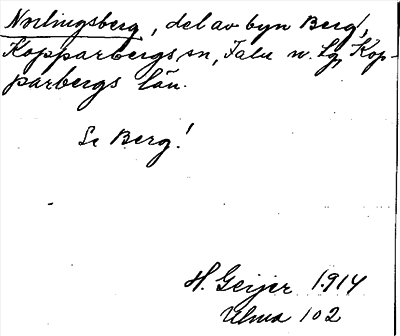 Norlingsberg, del av byn Berg,
Kopparbergs sn, Falu n. Lg, Kop-
parbergs län.
Se Berg!
H. Geijer 1914
Ulma 102